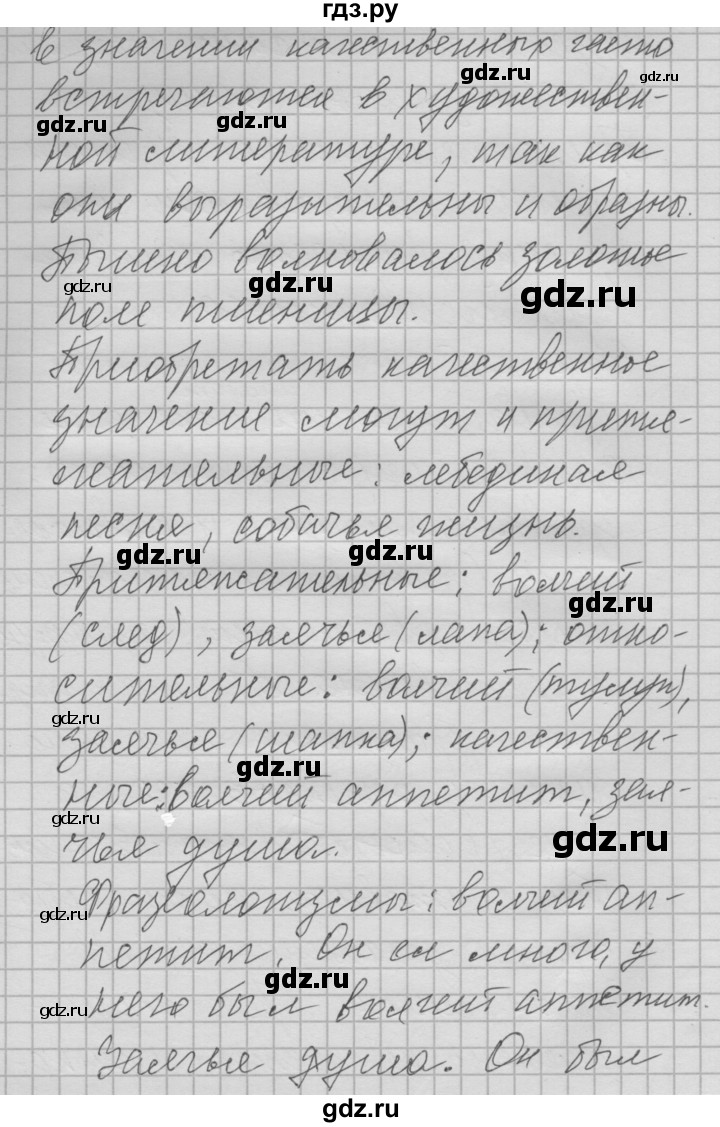 гдз.ру
в значении качественных часто
встречаются в художествен-
ной литературе, так как
они выразительны и образны.
Пышно волновалось золотое
поле пшеницы.
Приобретать качественное
значение могут и притя-
жательные: лебединая
песня, собачья жизнь.
Притяжательные: волчий
(след), заячья (лапа); отно-
сительные: волчий (тулуп),
заячья (шапка); качествен-
ные: волчий аппетит, зая-
чья душа.
Фразеологизмы: волчий ап-
петит. Он ел много, у
него был волчий аппетит.
Заячья душа. Он был
gdz.ru